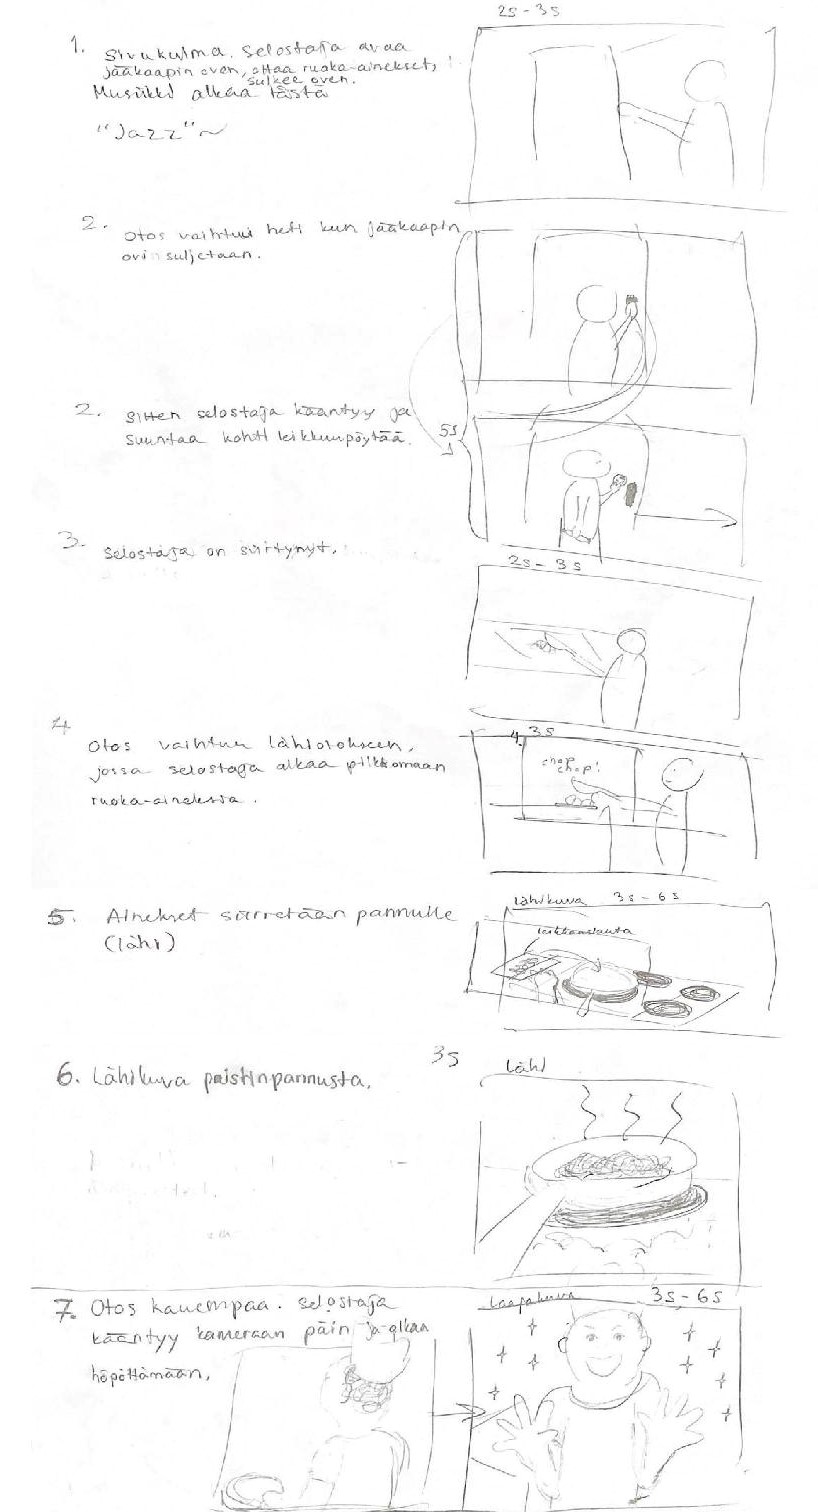 2s - 3s
1. Sivukulma. Selostaja avaa
jääkaapin oven, ottaa ruoka-ainekset,
sulkee oven.
Musiikki alkaa tästä
"Jazz"~
2. Otos vaihtuu heti kun jääkaapin
ovi suljetaan.
2. Sitten selostaja kääntyy ja
suuntaa kohti leikkuupöytää.
5s
3. Selostaja on siirtynyt.
2s - 3s
4 Otos vaihtuu lähiotokseen,
jossa selostaja alkaa pilkkomaan
ruoka-aineksia.
4. 3s
chop
chop!
5. Ainekset siirretään pannulle
(lähi)
Lähikuva 3s - 6s
leikkuulauta
6. Lähikuva paistinpannusta.
3s
Lähi
7. Otos kauempaa. Selostaja
kääntyy kameraan päin ja alkaa
höpöttämään.
Laajakuva 3s - 6s